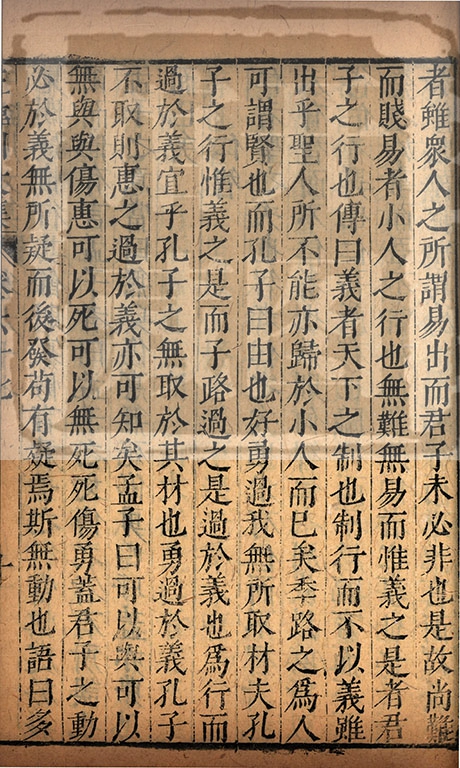 者雖衆人之所謂易出而君子未必非也是故尚難
而賤易者小人之行也無難無易而惟義之是者君
子之行也傳曰義者天下之制也制行而不以義雖
出乎聖人所不能亦歸於小人而已矣季路之為人
可謂賢也而孔子曰由也好勇過我無所取材夫孔
子之行惟義之是而子路過之是過於義也為行而
過於義宜乎孔子之無取於其材也勇過於義孔子
不取則惠之過於義亦可知矣孟子曰可以與可以
無與與傷惠可以死可以無死死傷勇蓋君子之動
必於義無所疑而後發苟有疑焉斯無動也語曰多